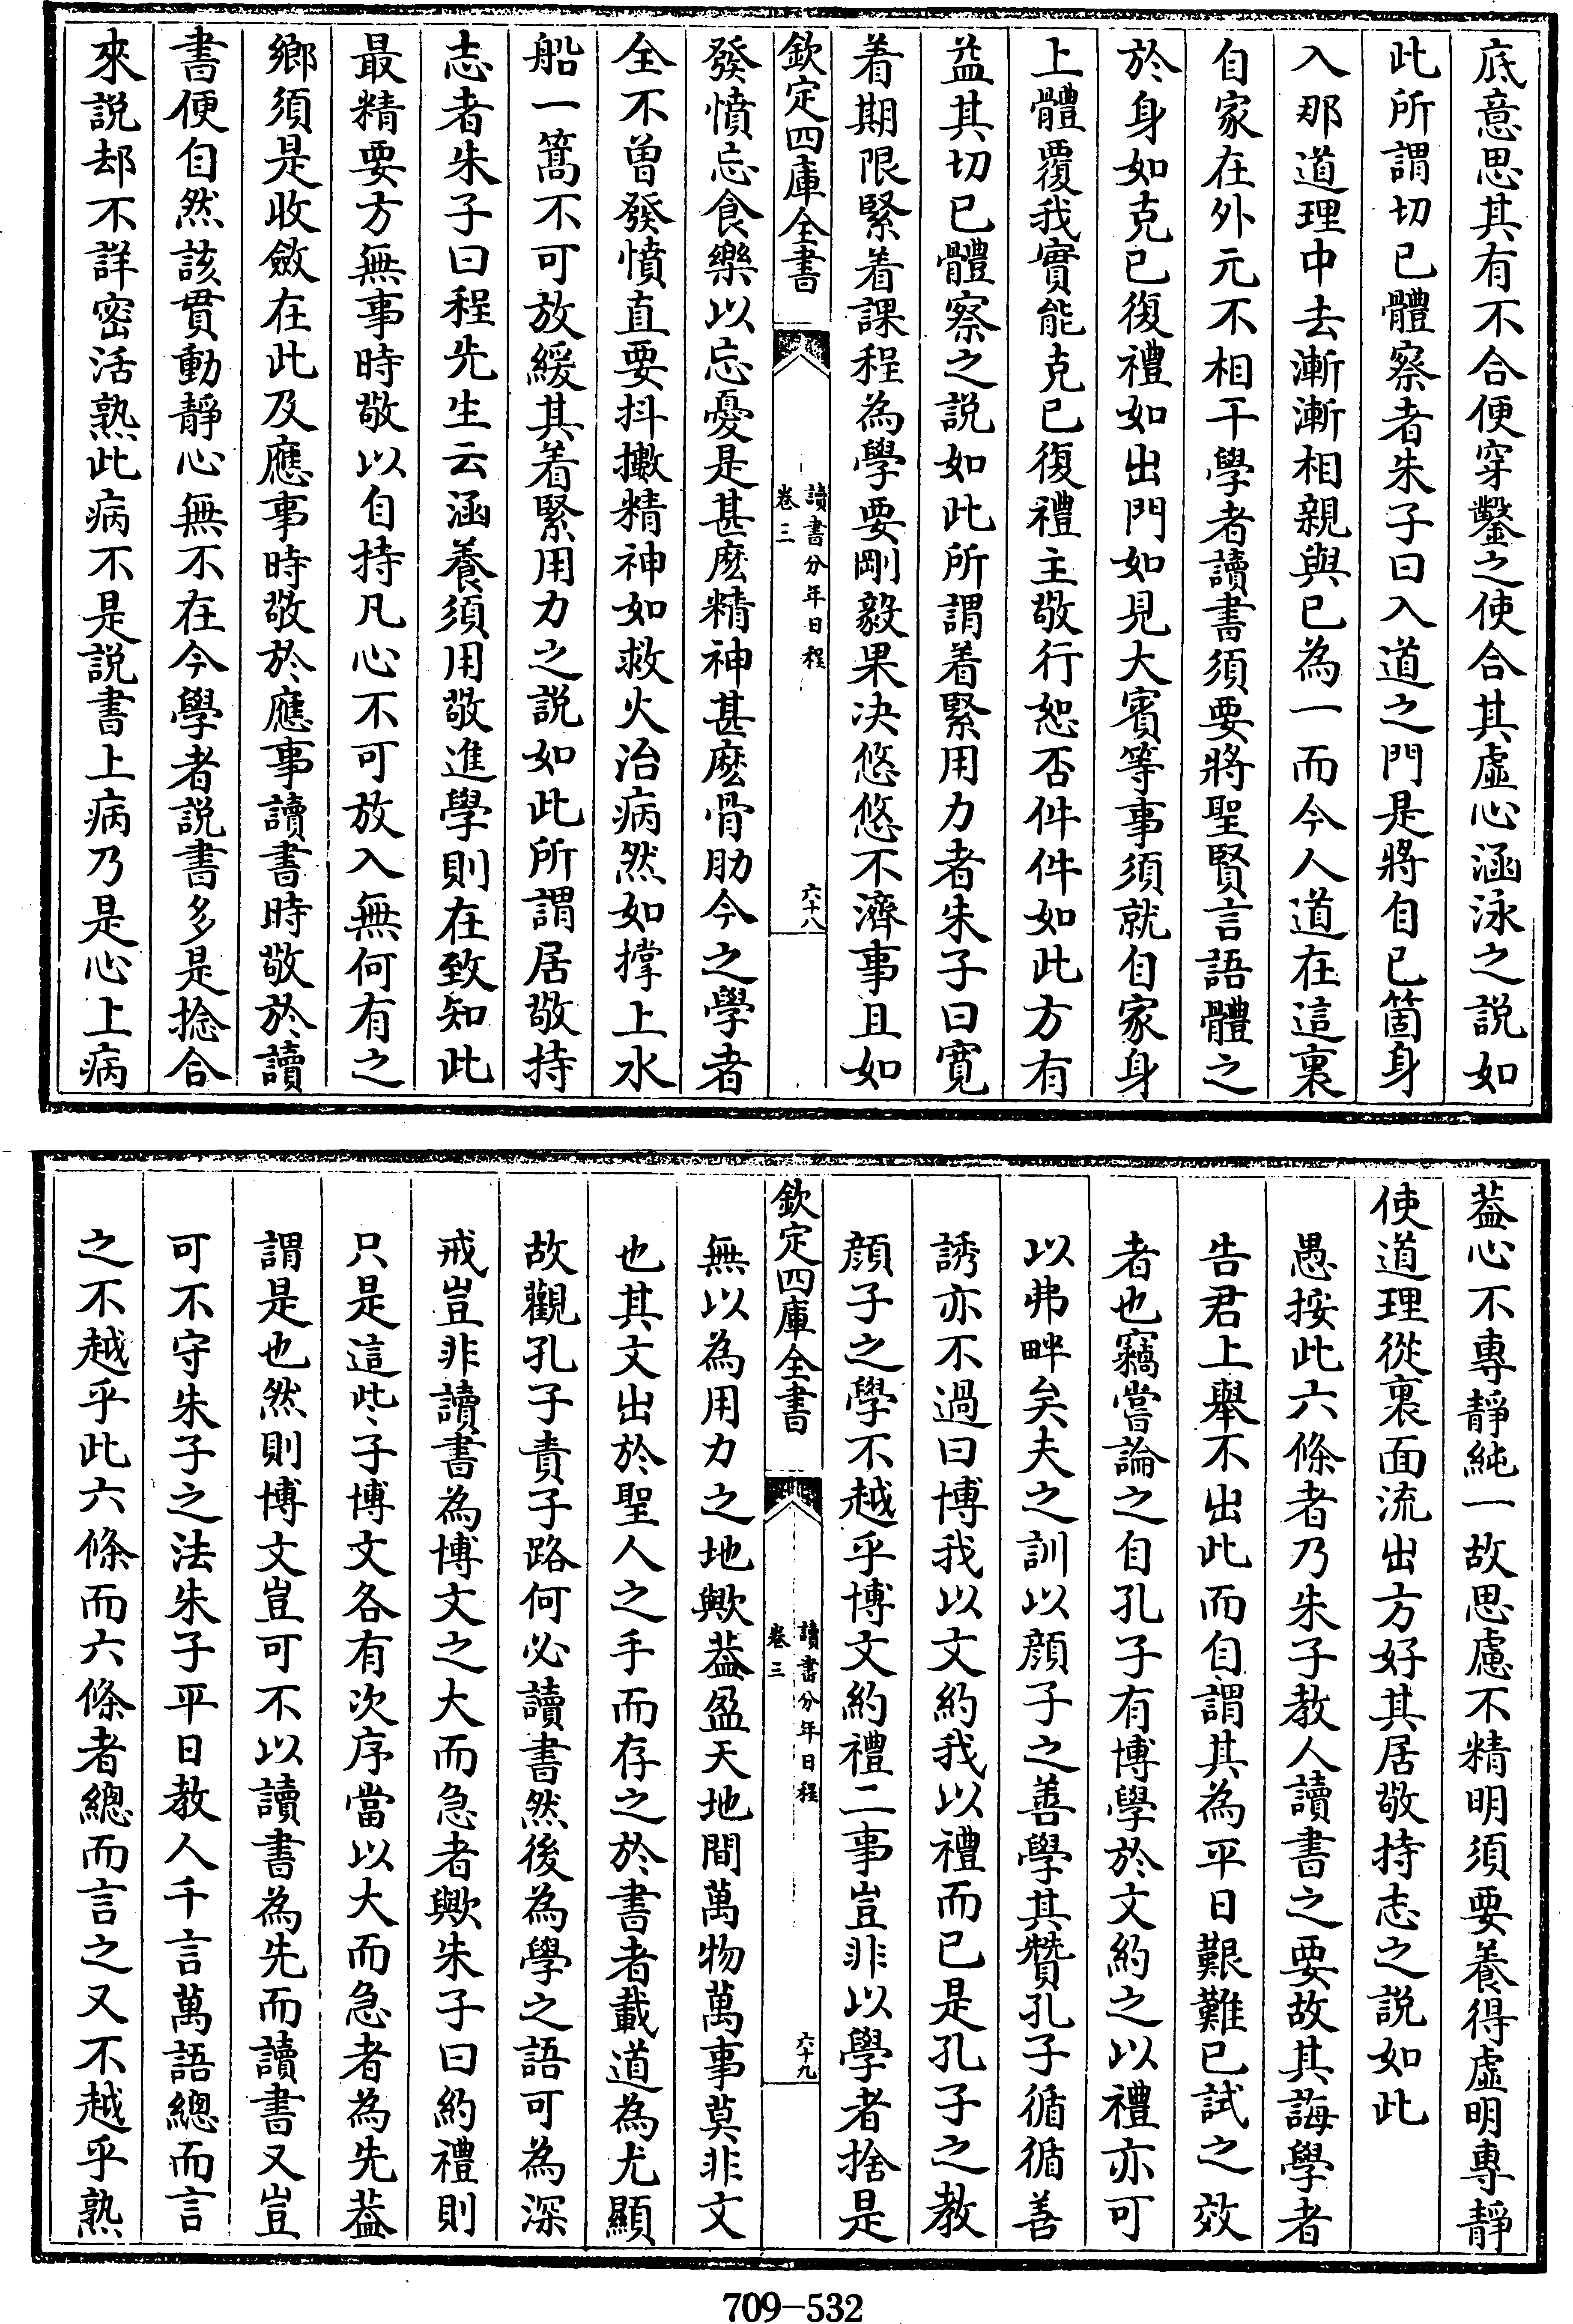 底意思其有不合便穿鑿之使合其虛心涵泳之説如
此所謂切已體察者朱子曰入道之門是將自已箇身
入那道理中去漸漸相親與已為一而今人道在這裏
自家在外元不相干學者讀書須要將聖賢言語體之
於身如克已復禮如出門如見大賓等事須就自家身
上體覆我實能克已復禮主敬行恕否件件如此方有
益其切已體察之説如此所謂着緊用力者朱子曰寛
着期限緊着課程為學要剛毅果决悠悠不濟事且如
欽定四庫全書
讀書分年日程
卷三
六十八
發憤忘食樂以忘憂是甚麽精神甚麽骨肋今之學者
全不曾發憤直要抖擻精神如救火治病然如撑上水
船一篙不可放緩其着緊用力之説如此所謂居敬持
志者朱子曰程先生云涵養須用敬進學則在致知此
最精要方無事時敬以自持凡心不可放入無何有之
鄉須是收斂在此及應事時敬於應事讀書時敬於讀
書便自然該貫動靜心無不在今學者説書多是捻合
來説却不詳密活熟此病不是説書上病乃是心上病
葢心不專靜純一故思慮不精明須要養得虛明專靜
使道理從裏面流出方好其居敬持志之説如此
愚按此六條者乃朱子教人讀書之要故其誨學者
告君上舉不出此而自謂其為平日艱難已試之效
者也竊嘗論之自孔子有博學於文約之以禮亦可
以弗畔矣夫之訓以顔子之善學其贊孔子循循善
誘亦不過曰博我以文約我以禮而已是孔子之教
顔子之學不越乎博文約禮二事豈非以學者捨是
欽定四庫全書
讀書分年日程
卷三
六十九
無以為用力之地歟葢盈天地間萬物萬事莫非文
也其文出於聖人之手而存之於書者載道為尤顯
故觀孔子責子路何必讀書然後為學之語可為深
戒豈非讀書為博文之大而急者歟朱子曰約禮則
只是這些子博文各有次序當以大而急者為先葢
謂是也然則博文豈可不以讀書為先而讀書又豈
可不守朱子之法朱子平日教人千言萬語總而言
之不越乎此六條而六條者總而言之又不越乎熟
709-532